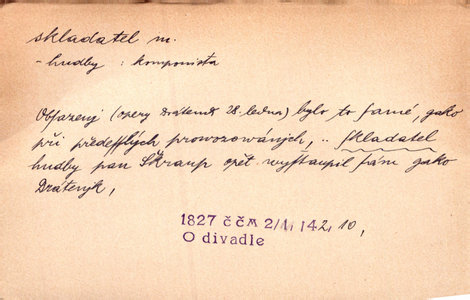 skladatel m.
- hudby : komponista
Obsazenj (opery Dráteník 28. ledna) bylo to samé, gako
při předesslých prowozowánjch, .. skladatel
hudby pan Škraup opět wystaupil sám gako
Drátenjk,
1827 ČČM 2/1, 142, 10,
O divadle